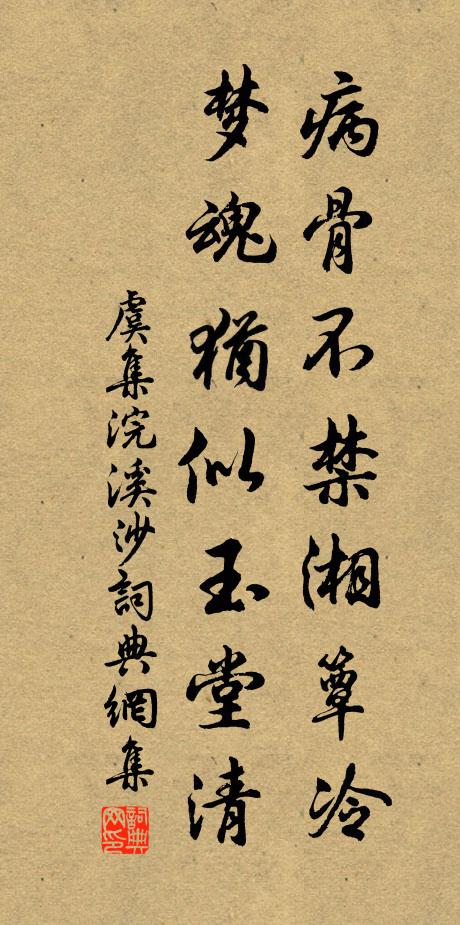 病骨不禁湘簟冷
梦魂猶似玉堂清
虞集浣溪沙詞典網集
詞典网印